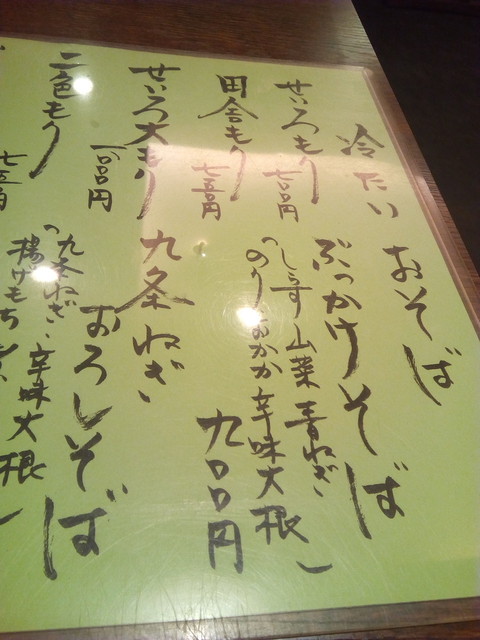 冷たい
おそば
せいろもり
七〇〇円
ぶっかけそば
(しらす 山菜 青ねぎ、
のり、おかか 辛味大根)
九〇〇円
田舎もり
七五〇円
せいろ大もり
九条ねぎ、
おろしそば
(九条ねぎ、辛味大根)
二色もり